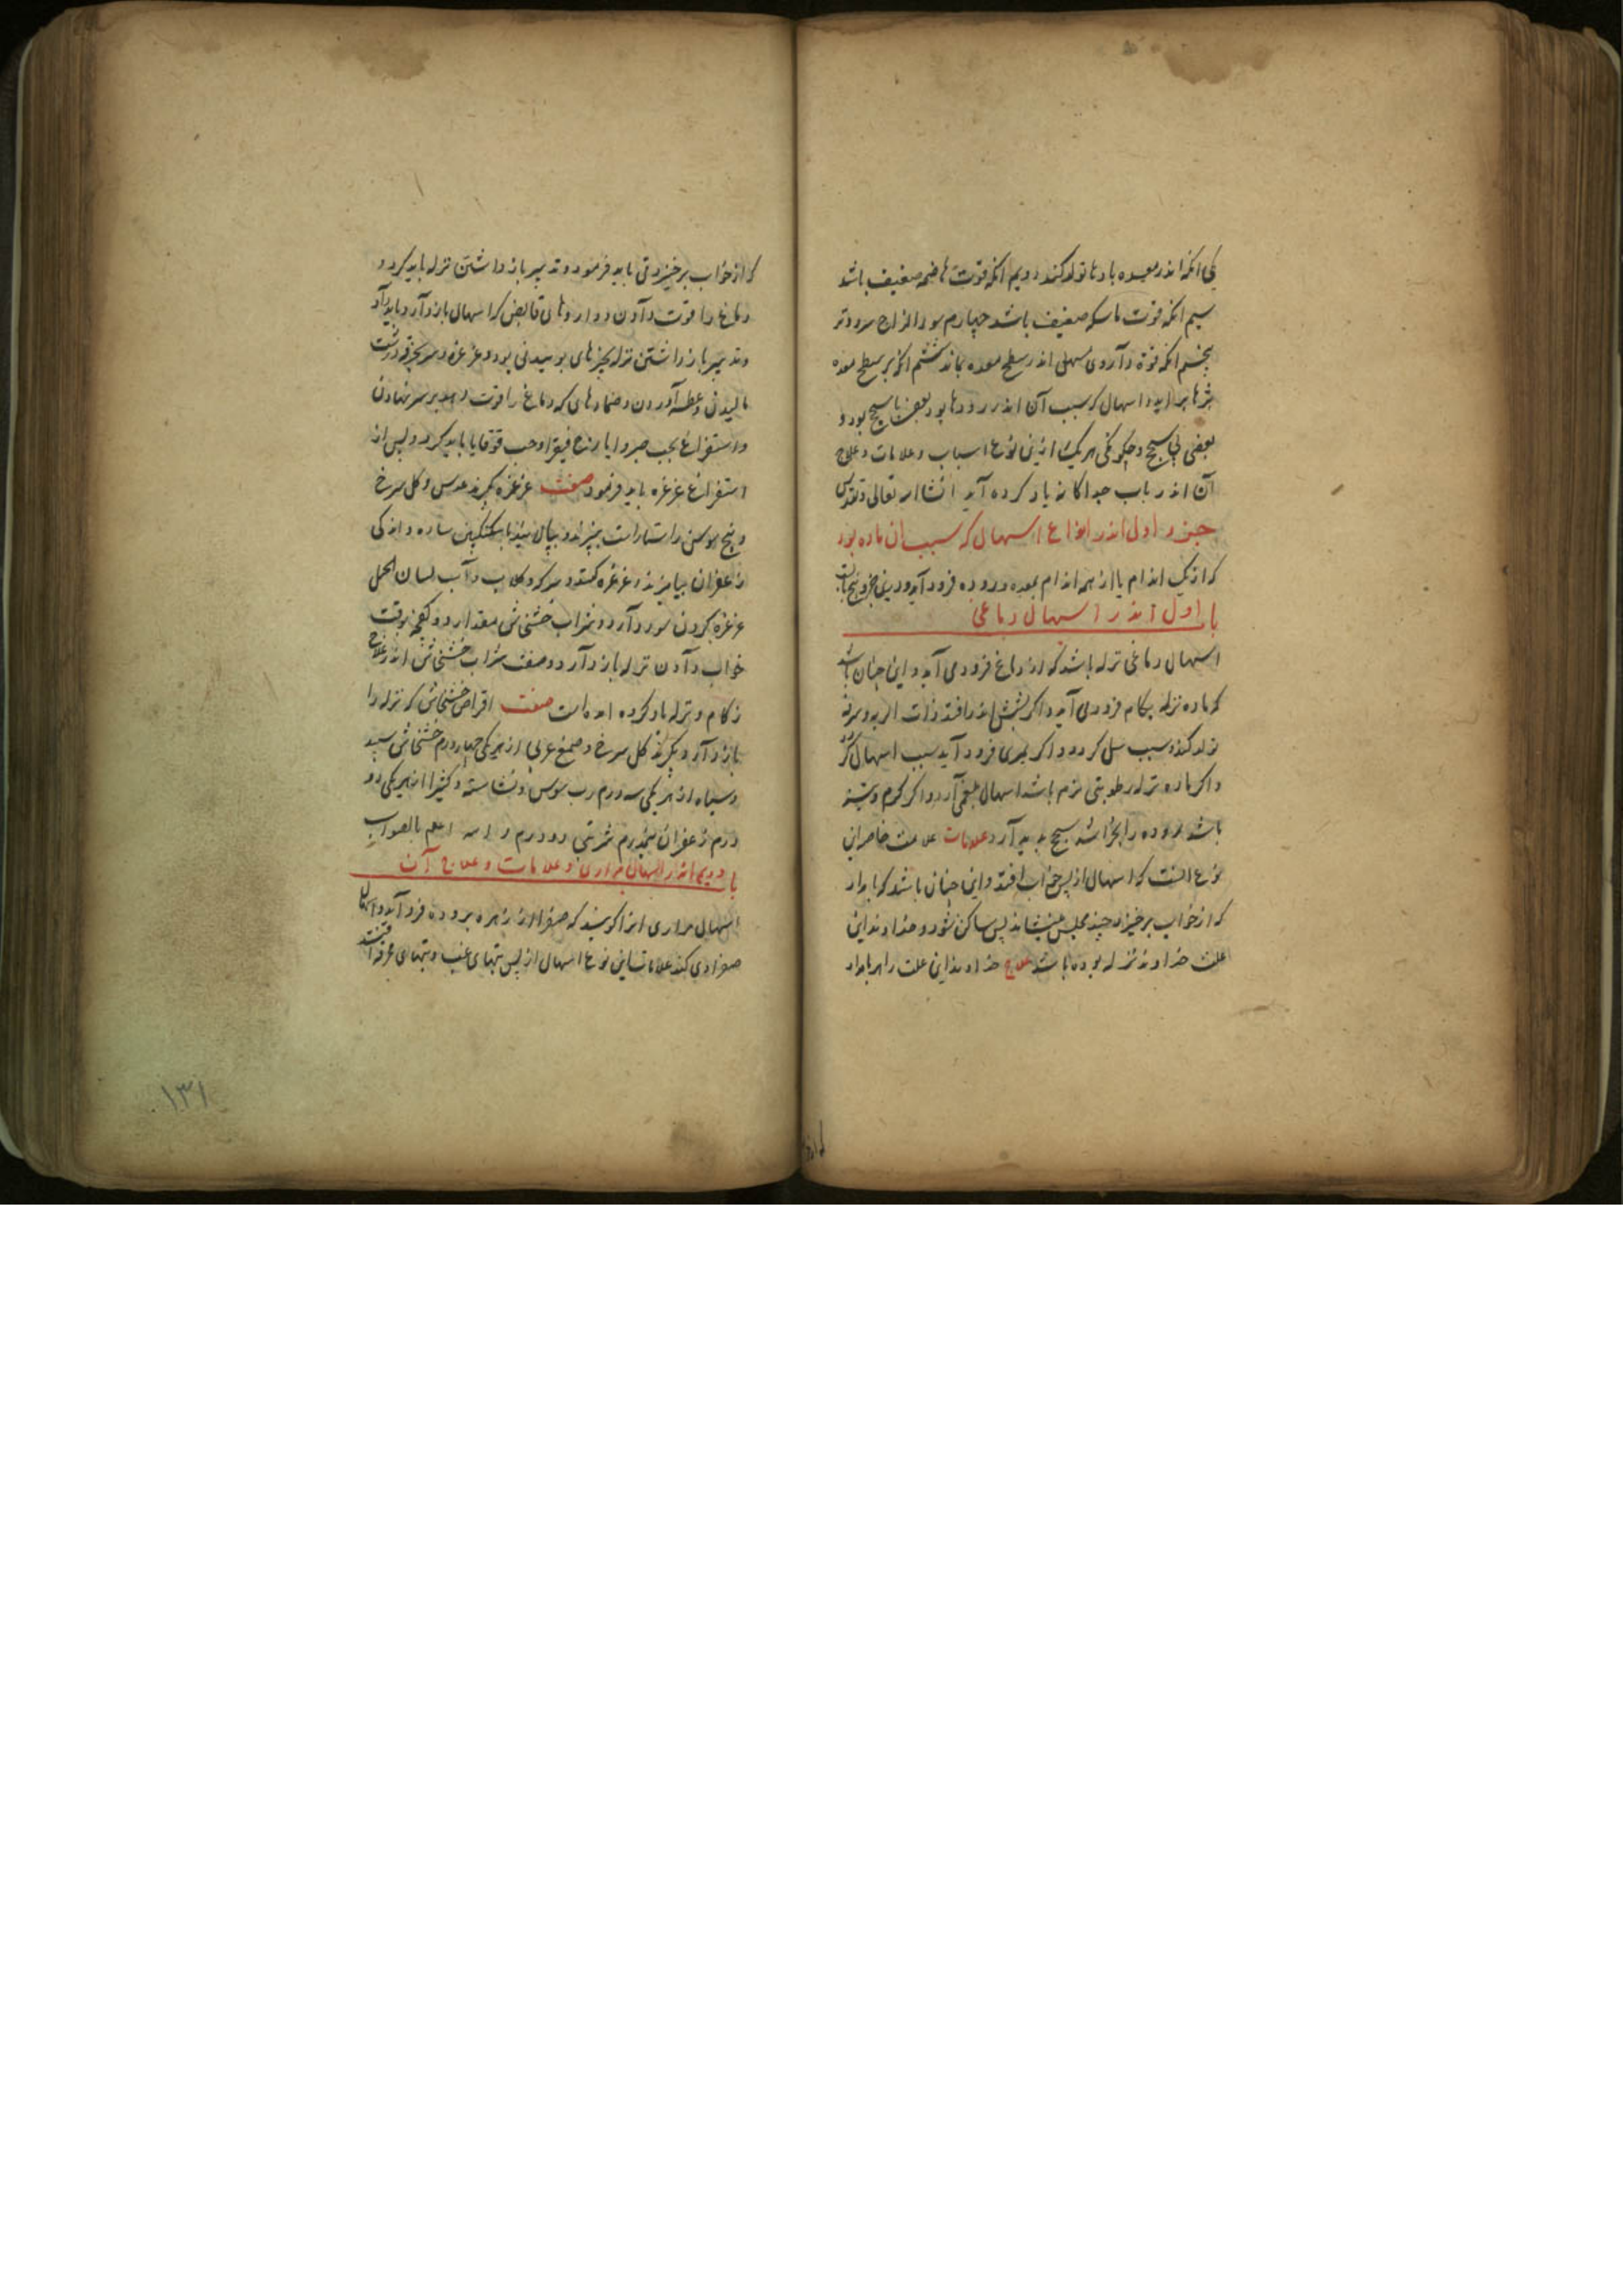 یکی انکه اندر معده بادها تولد کند دویم انکه قوت هاضمه ضعیف باشد
سیم انکه قوت ماسکه ضعیف باشد چهارم سو المزاج سرد و تر
پنجم انکه قوة داروی مسهل اندر سطح معده بماند ششم انکه بر سطح معده
بثرها براید و اسهال که سبب آن اندر رودها بود بعضی با سحج بود و
بعضی بی سحج و چکونکی هر یک ازین نوعها و اسباب و علامات و علاج
آن اندر باب جداکانه یاد کرده آید انشاالله تعالی و تقدس
جزو اول اندر انواع اسهال که سبب ان ماده بود
که از یک اندام یا از همه اندام بمعده و روده فرود آید و درین جزو پنج بابست
باب اول اندر اسهال دماغی
اسهال دماغی نزله باشد که از دماغ فرود می آید و این چنان باشد
که ماده نزله بکام فرود می آید و اکر بشش اندر افتد ذات الریه و سرفه
تولد کند و سبب سل کردد و اکر بمری فرود آید سبب اسهال کردد
و اکر ماده نزله رطوبتی نرم باشد اسهال بلغمی آرد و اکر کرم و تیز
باشد روده را بخراشد سحج پدید آرد علامات علامت خاصه این
نوع انست که اسهال از پس خواب افتد و این چنان باشد که بامداد
که از خواب برخیزد چند مجلس بنشاند پس ساکن شود و خداوند این
علت خداوند نزله بوده باشد علاج خداوند این علت را هر بامداد
که از خواب برخیزد قی باید فرمود و تدبیر باز داشتن نزله باید کرد و
دماغ را قوت دادن و داروهای قابض که اسهال باز دارد باید داد
و تدبیر باز داشتن نزله بچیزهای بوییدنی بود و غرغره و سر بخرقه درشت
مالیدن و عطسه آوردن و ضمادهای که دماغ را قوت دهد بر سر نهادن
و استفراغ بحب صبر و ایارج فیقرا و حب قوقایا باید کرد و پس از
استفراغ غرغره باید فرمود صفت غرغره بکیرند عدس و کل سرخ
و بیخ سوسن راستاراست بپزند و بپالایند و با سکنکبین ساده و اندکی
زعفران بیامیزند و غرغره کنند و سرکه و کلاب و آب لسان الحمل
غرغره کردن سود دارد و شراب خشخاش مقدار دو کفچه بوقت
خواب دادن نزله باز دارد و صفت شراب خشخاش اندر علاج
زکام و نزله یاد کرده امده است صفت اقراص خشخاش که نزله را
باز دارد بکیرند کل سرخ و صمغ عربی از هر یکی چهار درم خشخاش سپید
و سیاه از هر یکی سه درم رب سوس و نشاسته و کثیرا از هر یکی دو
درم زعفران نیم درم شربتی دو درم والله اعلم بالصواب
باب دویم اندر اسهال مراری و علامات و علاج آن
اسهال مراری انرا کویند که صفرا از زهره بروده فرود آید و اسهال
صفراوی کند علامات این نوع اسهال از پس تبهای غب و تبهای محرقه افتد
۱۳۱